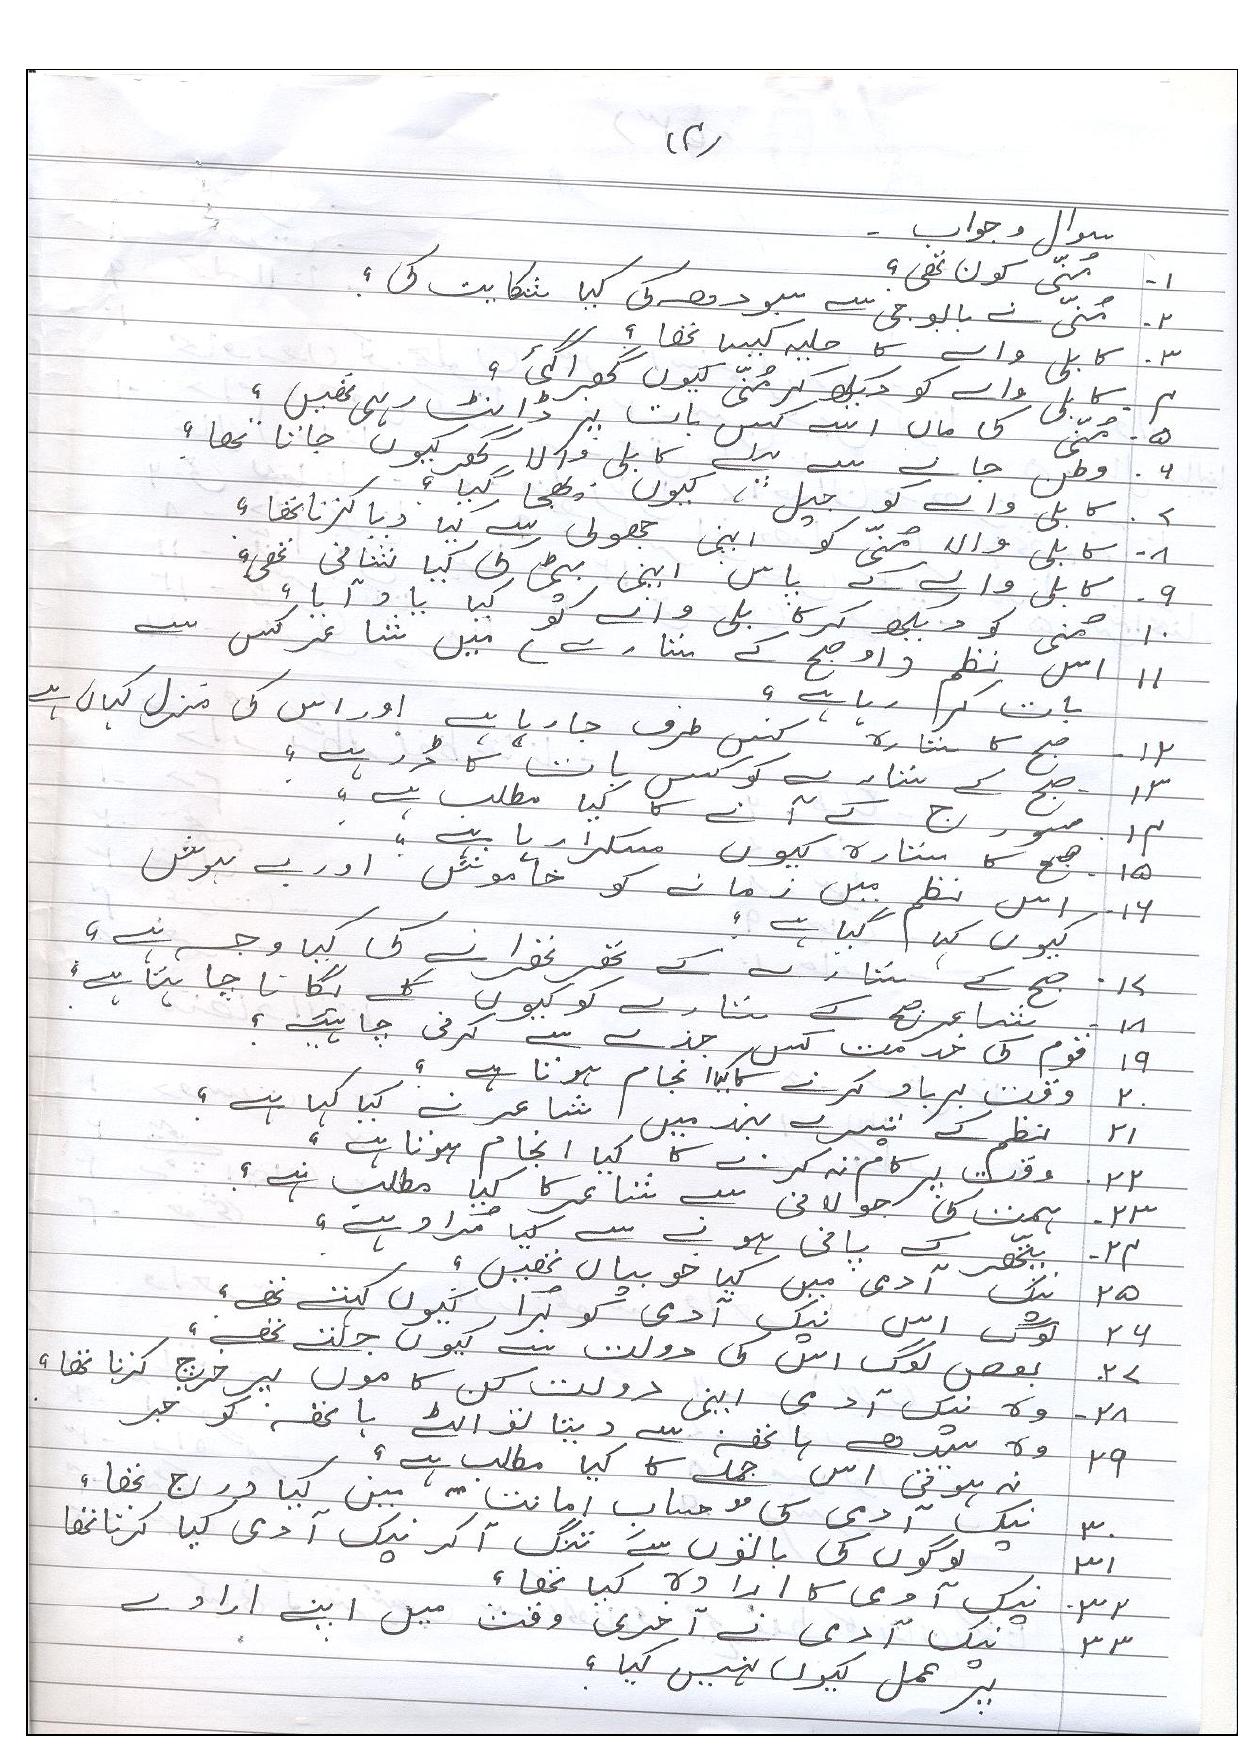 (۴)
سوال و جواب -
۱- مُنّی کون تھی؟
۲- مُنّی نے بابوجی سے سبودھ کی کیا شکایت کی؟
۳- کابلی والے کا حلیہ کیسا تھا؟
۴- کابلی والے کو دیکھ کر مُنّی کیوں گھبرا گئی؟
۵- مُنّی کی ماں اسے کس بات پر ڈانٹ رہی تھیں؟
۶- وطن جانے سے پہلے کابلی والا گھر گھر کیوں جاتا تھا؟
۷- کابلی والے کو جیل کیوں بھیجا گیا؟
۸- کابلی والا مُنّی کو اپنی جھولی سے کیا دیا کرتا تھا؟
۹- کابلی والے کے پاس اپنی بیٹی کی کیا نشانی تھی؟
۱۰- مُنی کو دیکھ کر کابلی والے کو کیا یاد آیا؟
۱۱ اس نظم (او صبح کے ستارے) میں شاعر کس سے
بات کر رہا ہے؟
۱۲- صبح کا ستارہ کس طرف جا رہا ہے اور اس کی منزل کہاں ہے
۱۳- صبح کے ستارے کو کس بات کا ڈر ہے؟
۱۴- سورج کے آنے کا کیا مطلب ہے؟
۱۵- صبح کا ستارہ کیوں مسکرا رہا ہے؟
۱۶- اس نظم میں زمانے کو خاموش اور بے ہوش
کیوں کہا گیا ہے؟
۱۷- صبح کے ستارے کے تھرتھرانے کی کیا وجہ ہے؟
۱۸- شاعر صبح کے ستارے کو کیوں گلے لگانا چاہتا ہے؟
۱۹ قوم کی خدمت کس جذبے سے کرنی چاہیے؟
۲۰ وقت برباد کرنے کا کیا انجام ہوتا ہے؟
۲۱ نظم کے تیسرے بند میں شاعر نے کیا کہا ہے؟
۲۲- وقت پر کام نہ کرنے کا کیا انجام ہوتا ہے؟
۲۳- ہمت کی جولانی سے شاعر کا کیا مطلب ہے؟
۲۴- پتّھر کے پانی ہونے سے کیا مُراد ہے؟
۲۵ نیک آدمی میں کیا خوبیاں تھیں؟
۲۶ لوگ اس نیک آدمی کو بُرا کیوں کہتے تھے؟
۲۷- بعض لوگ اس کی دولت سے کیوں جلتے تھے؟
۲۸- وہ نیک آدمی اپنی دولت کن کاموں پر خرچ کرتا تھا؟
۲۹ وہ سیدھے ہاتھ سے دیتا تو الٹے ہاتھ کو خبر
نہ ہوتی اس جملے کا کیا مطلب ہے؟
۳۰ نیک آدمی کی "حساب امانت" میں کیا درج تھا؟
۳۱ لوگوں کی باتوں سے تنگ آکر نیک آدمی کیا کرتا تھا
۳۲- نیک آدمی کا ارادہ کیا تھا؟
۳۳ نیک آدمی نے آخری وقت میں اپنے ارادے
پر عمل کیوں نہیں کیا؟